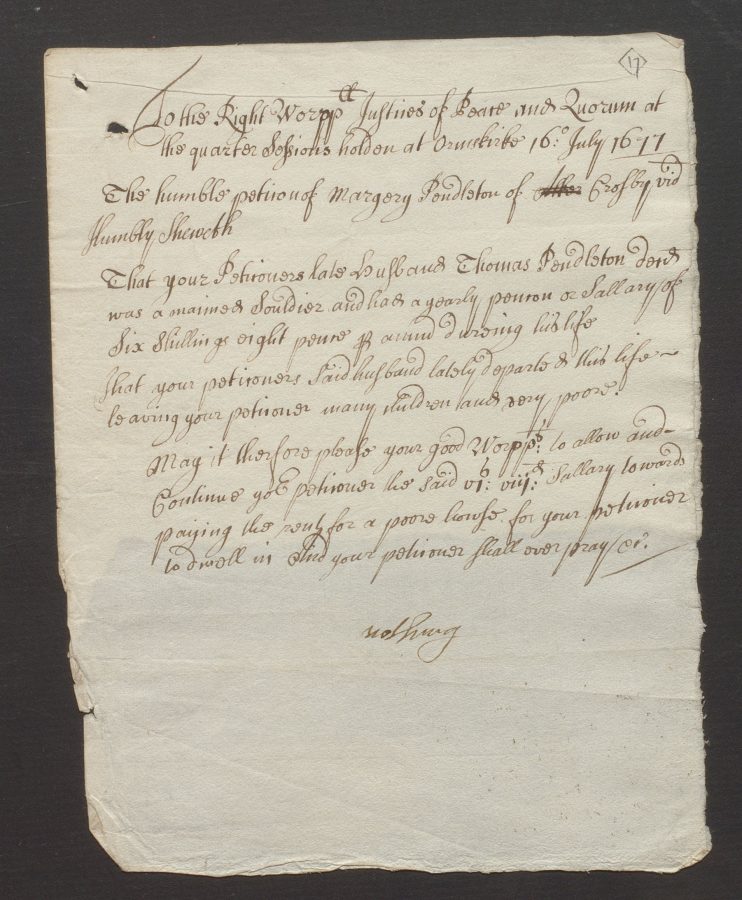 17
To the Right Worpp ll Justices of Peace and Quorum at
the quarter Sessions holden at Ormskirke 16o July 1677
The humble peticon of Margery Pendleton of Crosby vid
Humbly Sheweth
That your Peticoners late Husband Thomas Pendleton decd
was a maimed Souldier and had a yearly pencon or Sallary of
Six Shillings eight pence p annu dureing his life
That your peticoners said husband lately departed this life ~
leaving your peticoner many children and very poore.
May it therfore please your good Worpps: to allow and
Continue yor peticoner the said vis: viijd: Sallary towards
paying the rent for a poore howse for your peticoner
to dwell in And your peticoner shall ever pray &c.
nothing